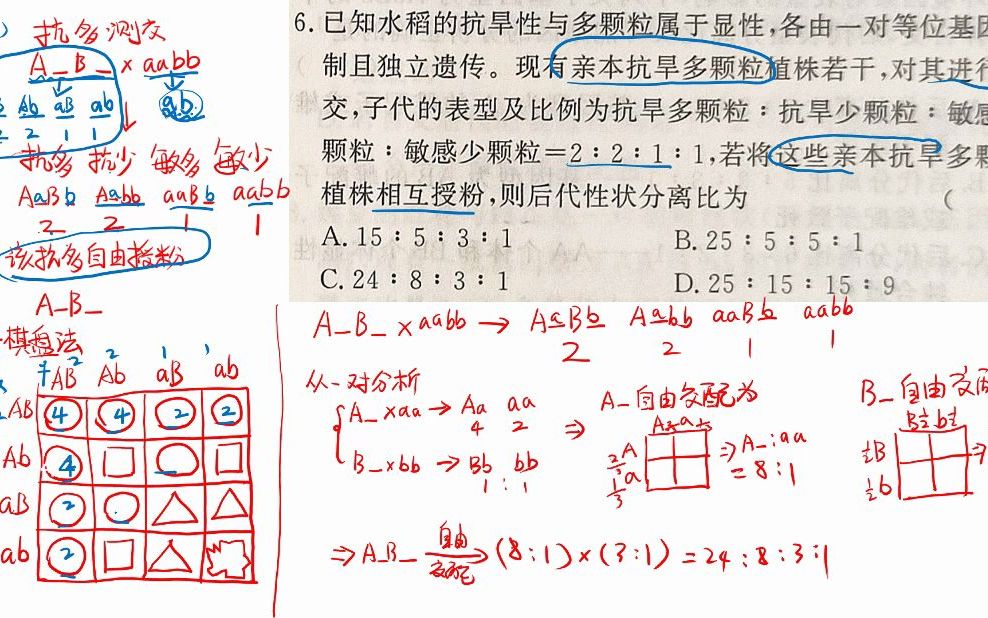 6. 已知水稻的抗旱性与多颗粒属于显性,各由一对等位基因
制且独立遗传。现有亲本抗旱多颗粒植株若干,对其进行
交,子代的表型及比例为抗旱多颗粒：抗旱少颗粒：敏感
颗粒：敏感少颗粒＝2：2：1：1,若将这些亲本抗旱多颗
植株相互授粉,则后代性状分离比为 (
A. 15：5：3：1
B. 25：5：5：1
C. 24：8：3：1
D. 25：15：15：9
抗多 测交
A_B_ × aabb
Ab aB ab
ab
2 1 1
抗多 抗少 敏多 敏少
AaBb Aabb aaBb aabb
2 2 1 1
该抗多自由授粉
A_B_
棋盘法
2 2 1 1
♀ AB Ab aB ab
AB 4 4 2 2
Ab 4
aB 2
ab 2
A_B_ × aabb → AaBb Aabb aaBb aabb
2 2 1 1
从一对分析
A_ × aa → Aa aa
4 2
B_ × bb → Bb bb
1 : 1
⇒
A_自由交配为
A⅔ a⅓
⅔A
⅓a
⇒ A_ : aa
= 8 : 1
B_自由交配
B½ b½
½B
½b
⇒ A_B_ 自由交配 → (8:1)×(3:1) = 24:8:3:1